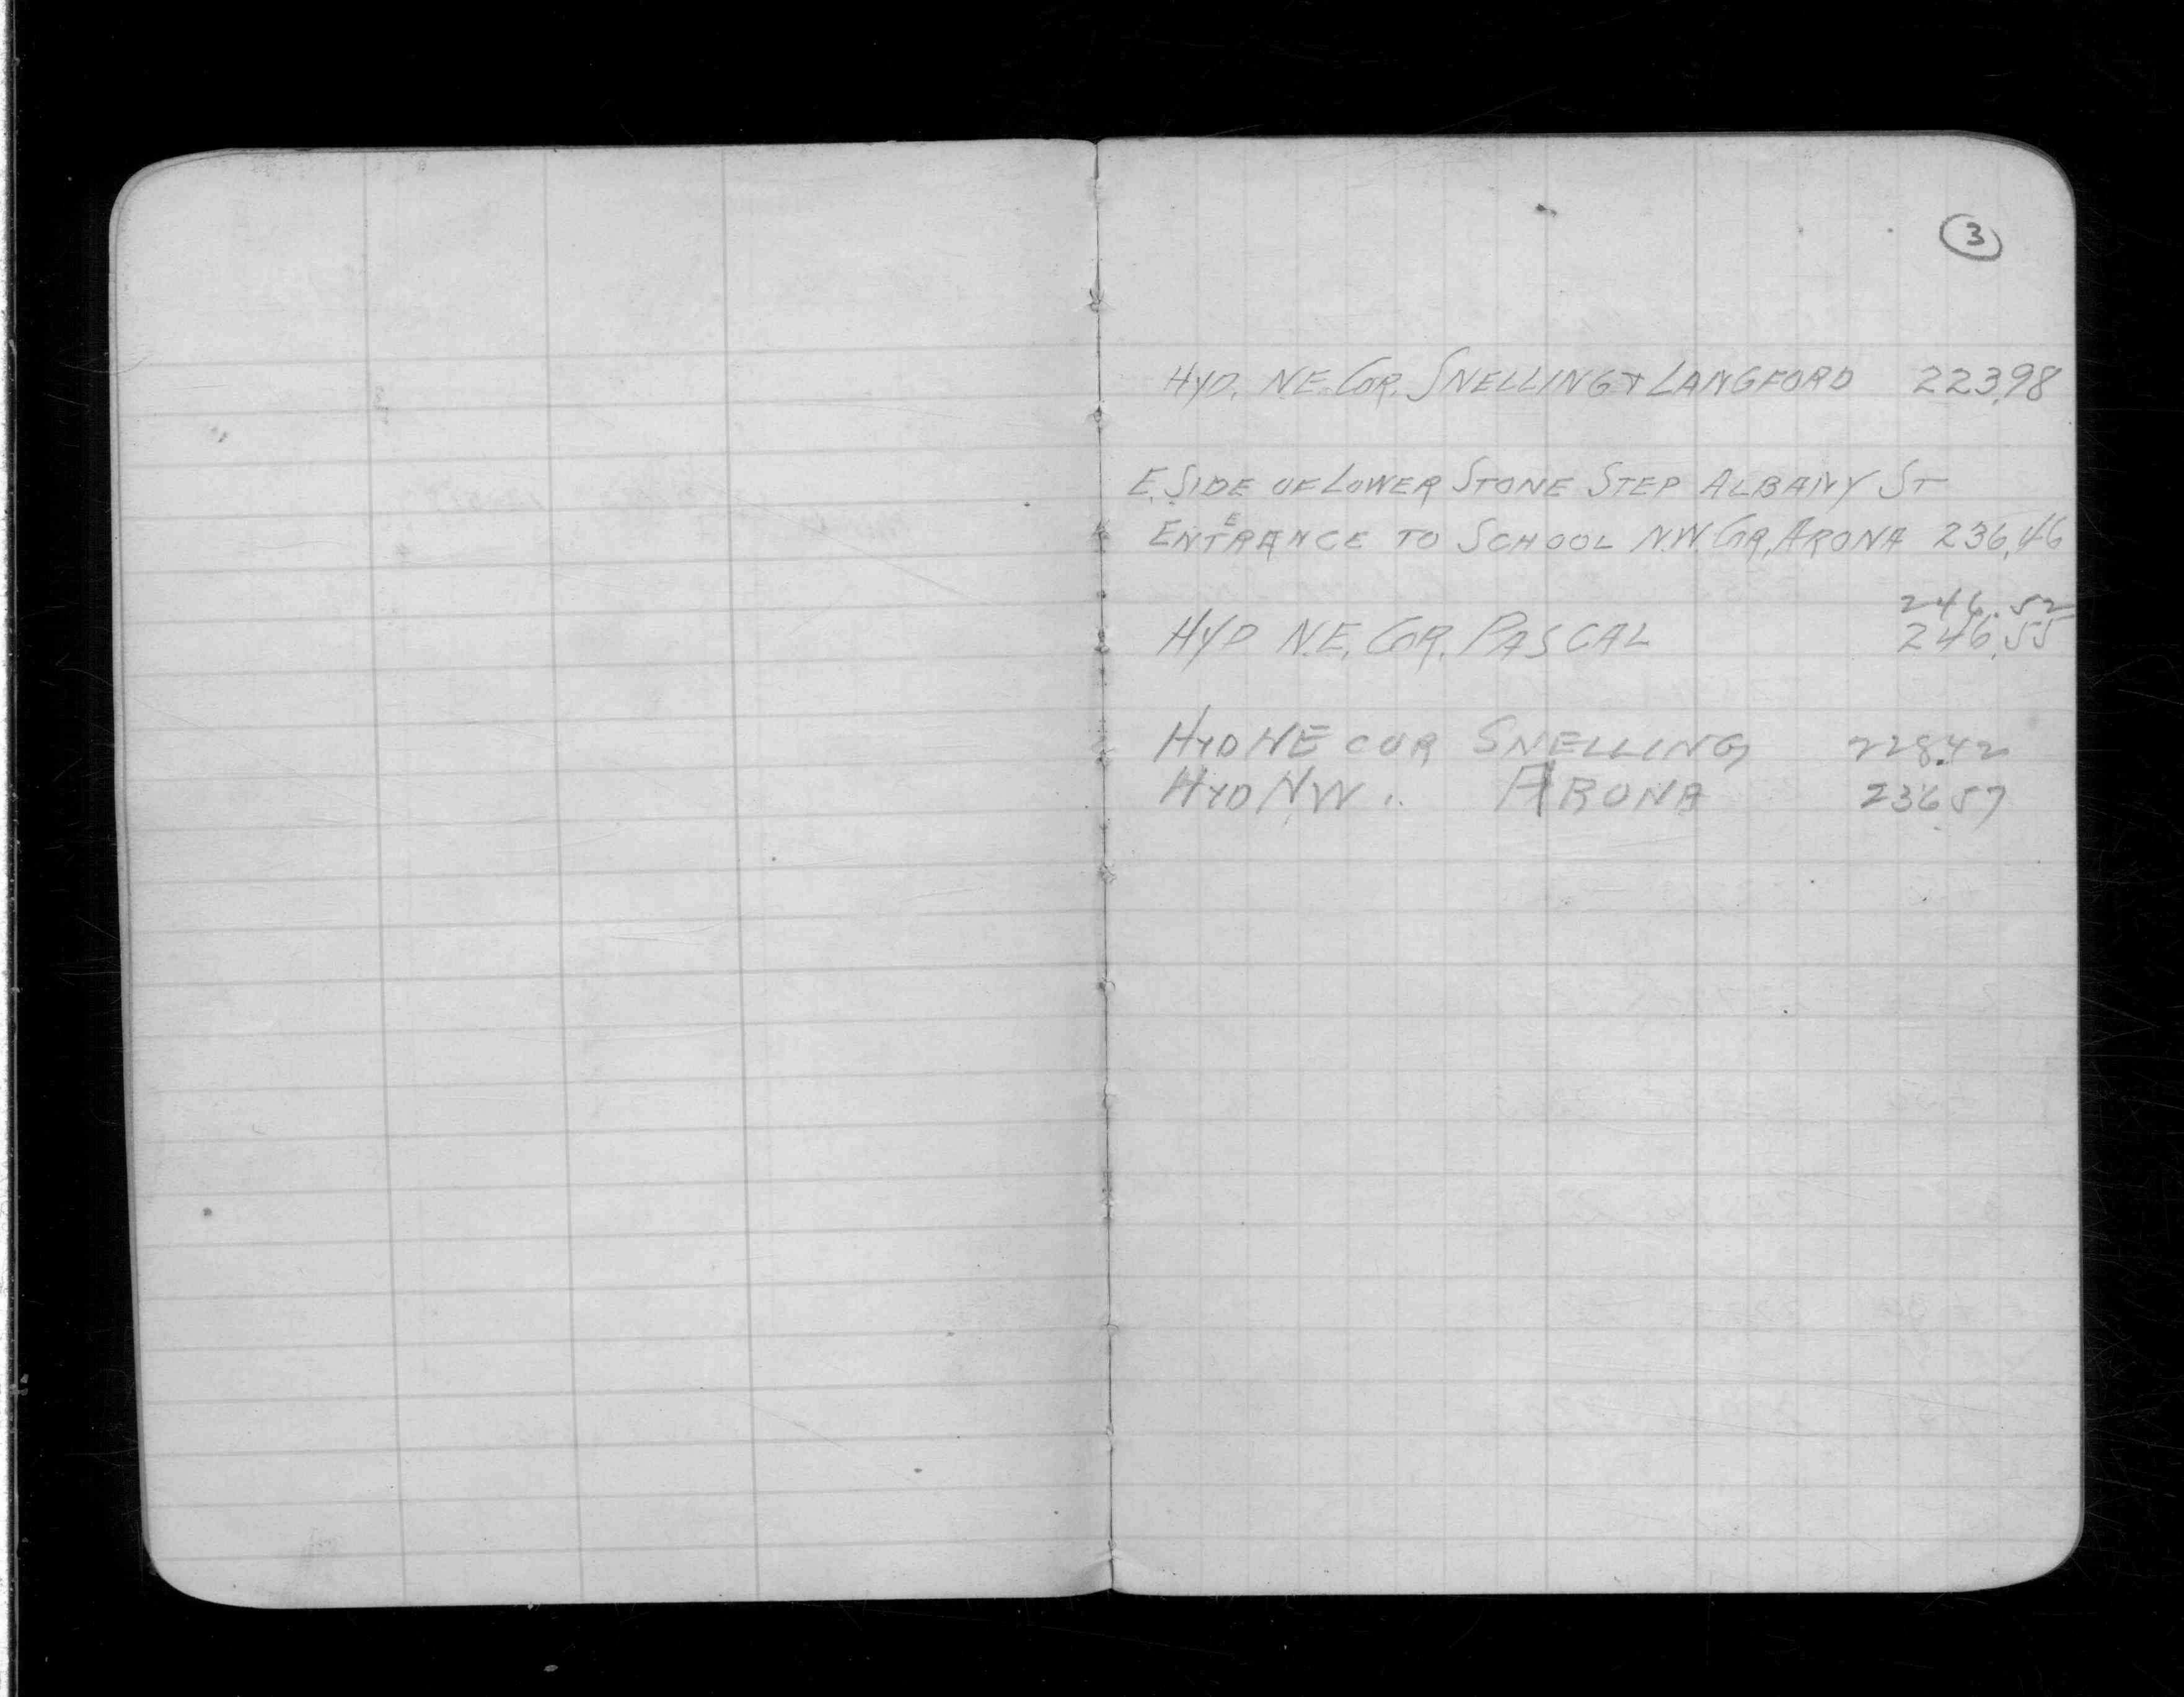 3
HYD. N.E. COR. SNELLING & LANGFORD 223.98
E. SIDE OF LOWER STONE STEP ALBANY ST
ENTERANCE TO SCHOOL N.W. COR. ARONA 236.46
246.52
HYD N.E. COR. PASCAL 246.55
HYD NE COR SNELLING 228.42
HYD NW " ARONA 236.57